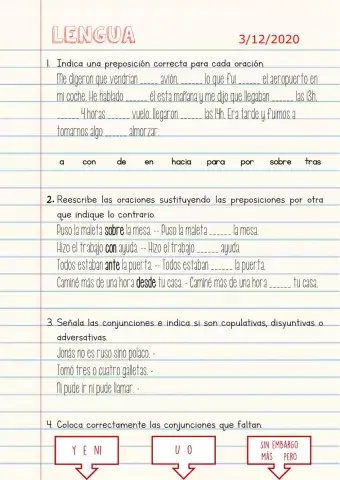 LENGUA
3/12/2020
1. Indica una preposición correcta para cada oración.
Me dijeron que vendrían _____ avión, ______ lo que fui ______ el aeropuerto en
mi coche. He hablado ______ él esta mañana y me dijo que llegaban ______ las 13h.
______ 4 horas ______ vuelo, llegaron ______ las 14h. Era tarde y fuimos a
tomarnos algo ______ almorzar.
a con de en hacia para por sobre tras
2. Reescribe las oraciones sustituyendo las preposiciones por otra
que indique lo contrario.
Puso la maleta sobre la mesa. -- Puso la maleta ______ la mesa.
Hizo el trabajo con ayuda. -- Hizo el trabajo ______ ayuda.
Todos estaban ante la puerta. -- Todos estaban ______ la puerta.
Caminé más de una hora desde tu casa. - Caminé más de una hora ______ tu casa.
3. Señala las conjunciones e indica si son copulativas, disyuntivas o
adversativas.
Jonás no es ruso sino polaco. -
Tomó tres o cuatro galletas. -
Ni pude ir ni pude llamar. -
4. Coloca correctamente las conjunciones que faltan.
Y E NI
U O
SIN EMBARGO
MÁS PERO